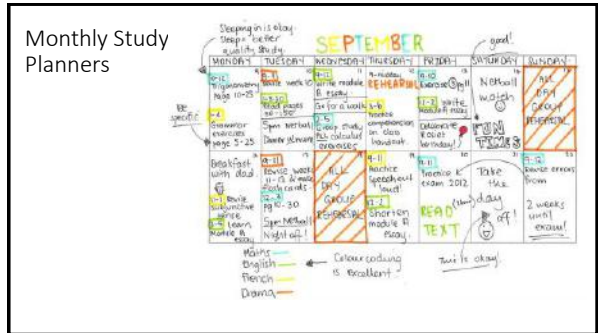 Monthly Study
Planners
Sleeping in is okay.
Sleep = better
quality study.
SEPTEMBER
good!
MONDAY TUESDAY WEDNESDAY THURSDAY FRIDAY SATURDAY SUNDAY
Be
specific
10-12
Trigonometry
page 10-25
Grammar
exercises
page 5-25
9-11
Revise week 10
Read pages
5pm Netball
Dance
9-12
Write module
A essay.
Go for a walk
2-5
Group study
calculus
exercises
9-midday
REHEARSAL
Practice
comprehension
in class
handout.
9-10
Exercise
11-2 write
Celebrate
birthday!
Netball
match
FUN
TIMES
ALL
DAY
GROUP
REHEARSAL
Breakfast
with dad
Revise
subjunctive
Learn
Module A
essay
9-11
Revise week
11-13
flashcards
pg 10-30
5pm Netball
Night off!
ALL
DAY
GROUP
REHEARSAL
9-11
Practice
Speech out
loud!
12-2
Shorten
module A
essay.
9-11
Practice
exam 2012
READ
TEXT
Take
the
day
off!
9-12
Revise errors
from
2 weeks
until
exam!
Maths
English
French
Drama
Colour coding
is Excellent.
This is okay!